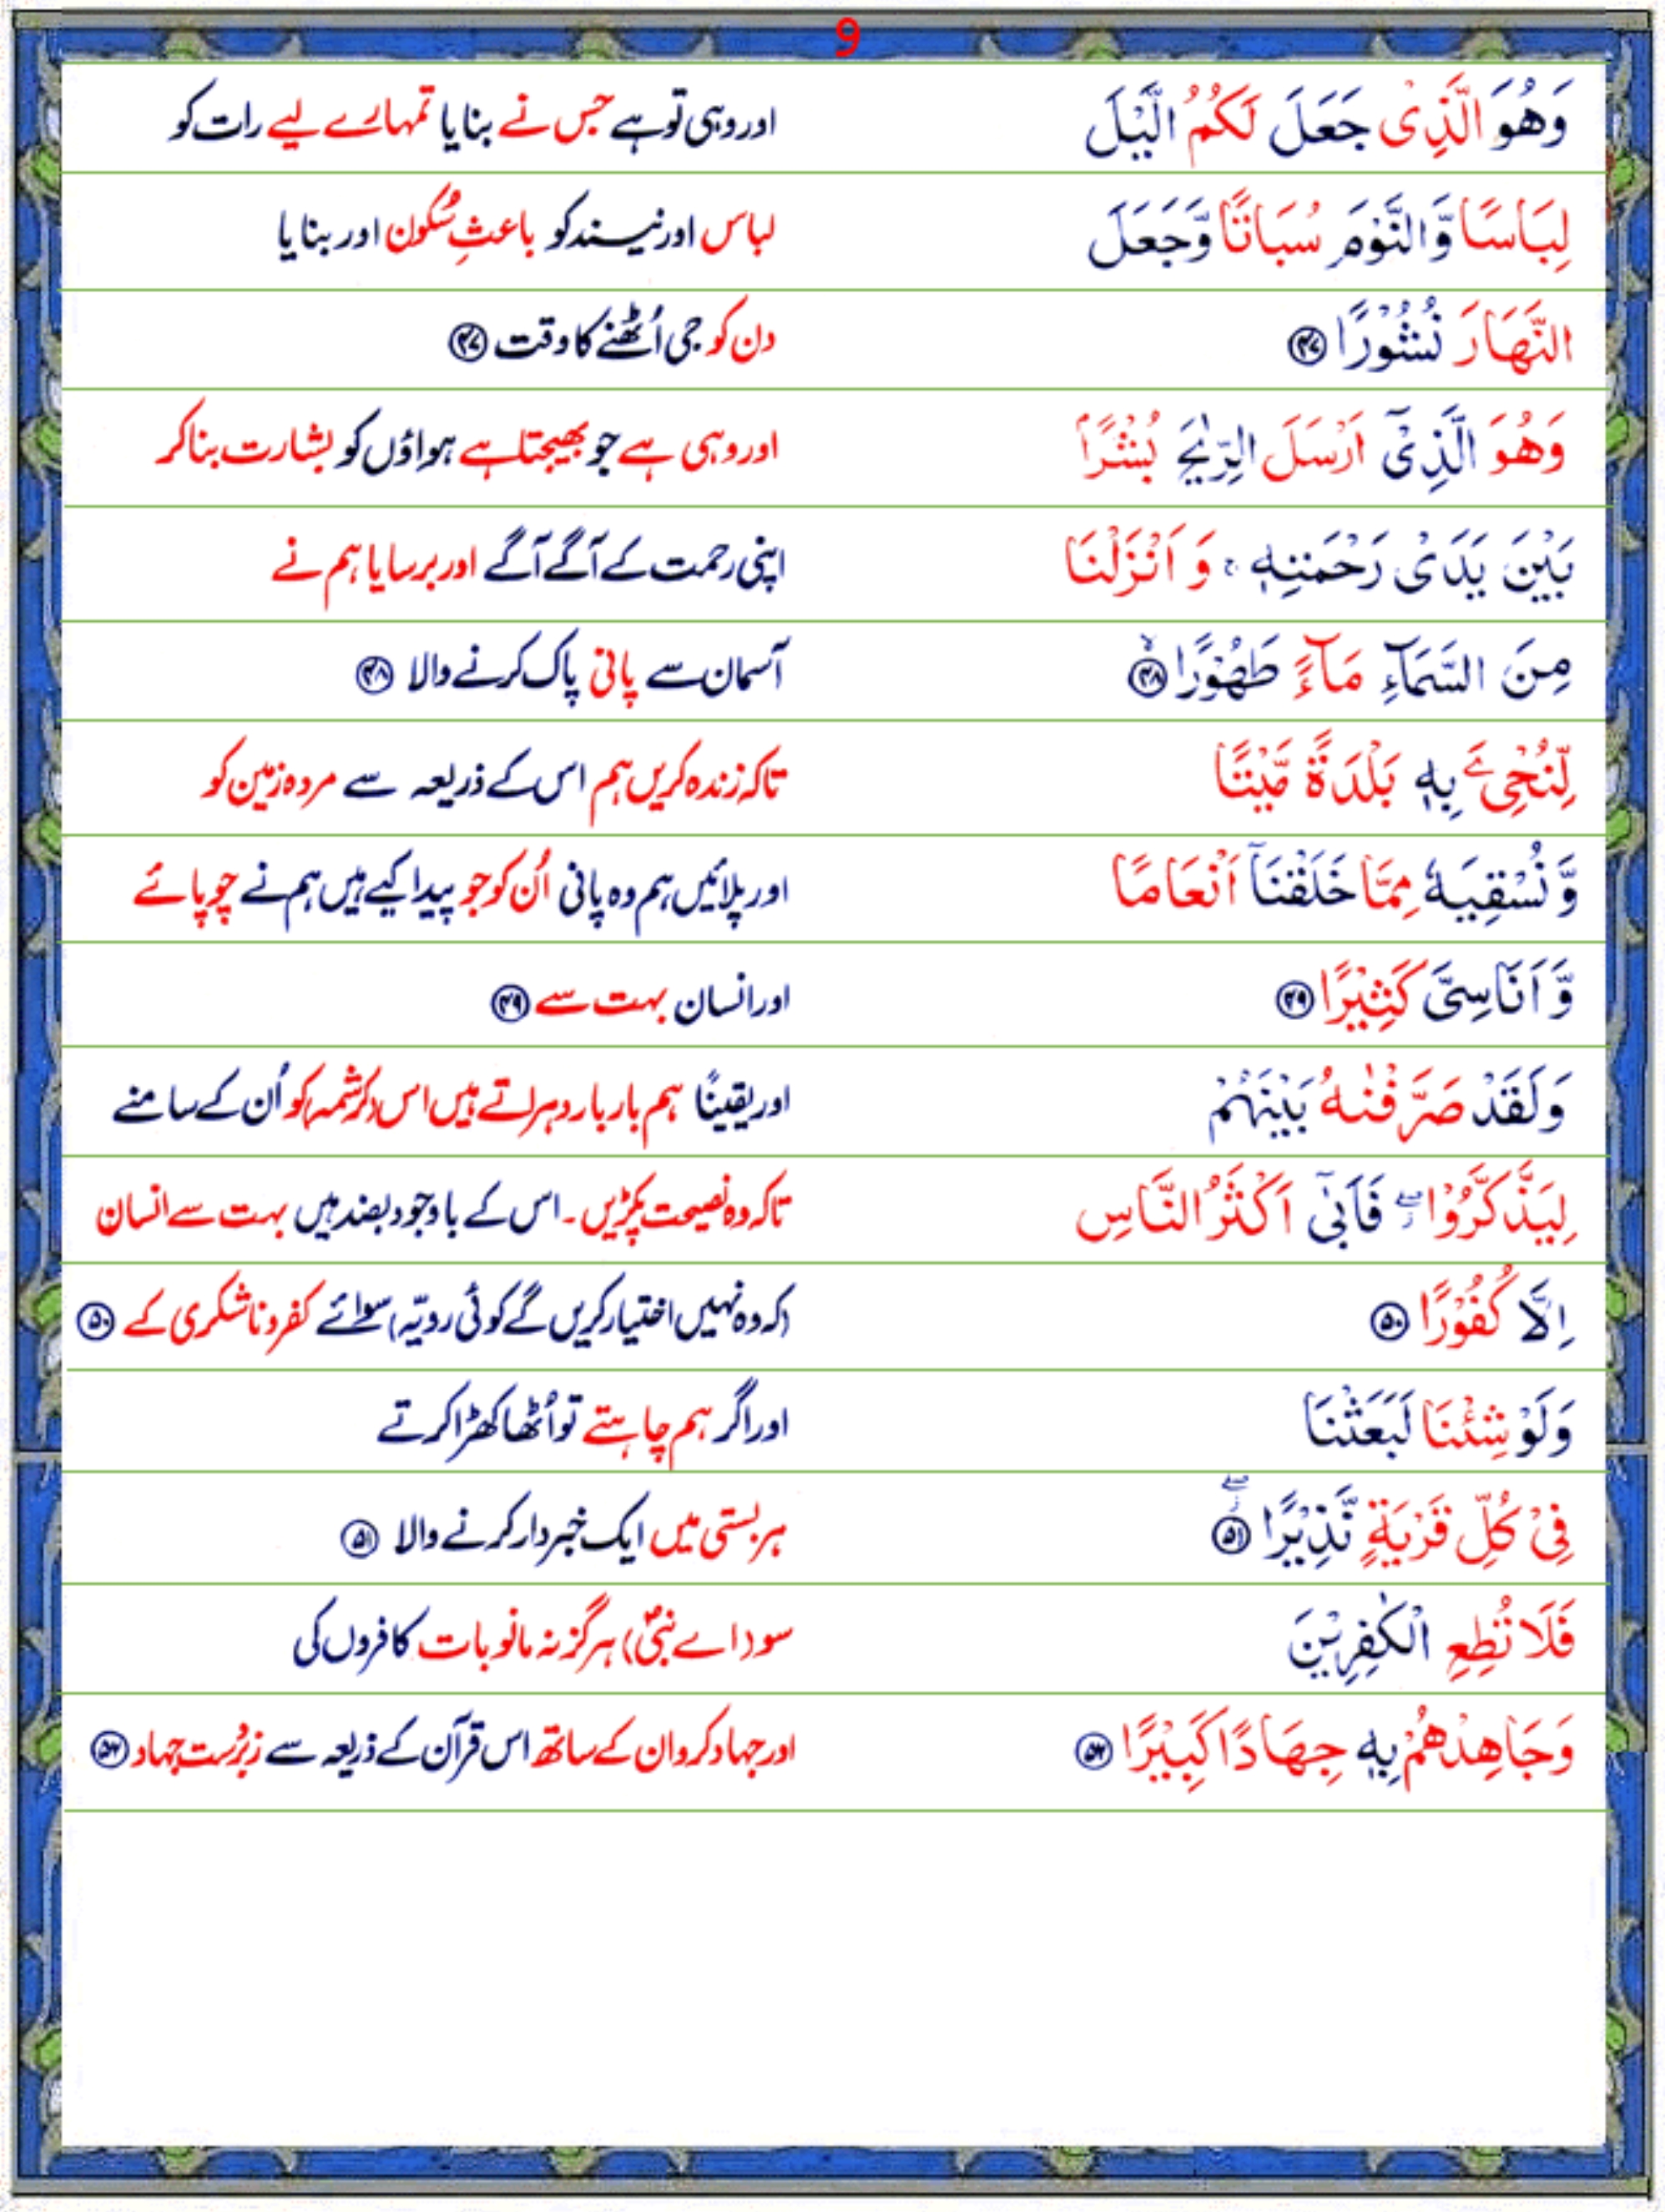 9
وَهُوَ الَّذِیْ جَعَلَ لَكُمُ الَّیْلَ اور وہی تو ہے جس نے بنایا تمہارے لیے رات کو
لِبَاسًا وَّالنَّوْمَ سُبَاتًا وَّجَعَلَ لباس اور نیند کو باعثِ سُکون اور بنایا
النَّهَارَ نُشُوْرًا ۴۷ دن کو جی اُٹھنے کا وقت ۴۷
وَهُوَ الَّذِیْۤ اَرْسَلَ الرِّیٰحَ بُشْرًۢا اور وہی ہے جو بھیجتا ہے ہواؤں کو بشارت بنا کر
بَیْنَ یَدَیْ رَحْمَتِهٖ ۚ وَ اَنْزَلْنَا اپنی رحمت کے آگے آگے اور برسایا ہم نے
مِنَ السَّمَآءِ مَآءً طَهُوْرًا ۙ۴۸ آسمان سے پانی پاک کرنے والا ۴۸
لِّنُحْیِۦَ بِهٖ بَلْدَةً مَّیْتًا تاکہ زندہ کریں ہم اس کے ذریعہ سے مردہ زمین کو
وَّ نُسْقِیَهٗ مِمَّا خَلَقْنَاۤ اَنْعَامًا اور پلائیں ہم وہ پانی اُن کو جو پیدا کیے ہیں ہم نے چوپائے
وَّ اَنَاسِیَّ كَثِیْرًا ۴۹ اور انسان بہت سے ۴۹
وَلَقَدْ صَرَّفْنٰهُ بَیْنَهُمْ اور یقینًا ہم بار بار دہراتے ہیں اس (کرشمہ) کو اُن کے سامنے
لِیَذَّكَّرُوْا ۖؗ فَاَبٰۤی اَكْثَرُ النَّاسِ تاکہ وہ نصیحت پکڑیں۔ اس کے باوجود بضد ہیں بہت سے انسان
اِلَّا كُفُوْرًا ۵۰ (کہ وہ نہیں اختیار کریں گے کوئی رویّہ) سوائے کفر و ناشکری کے ۵۰
وَلَوْ شِئْنَا لَبَعَثْنَا اور اگر ہم چاہتے تو اُٹھا کھڑا کرتے
فِیْ كُلِّ قَرْیَةٍ نَّذِیْرًا ۖؗ۵۱ ہر بستی میں ایک خبردار کرنے والا ۵۱
فَلَا تُطِعِ الْكٰفِرِیْنَ سو (اے نبیؐ) ہرگز نہ مانو بات کافروں کی
وَجَاهِدْهُمْ بِهٖ جِهَادًا كَبِیْرًا ۵۲ اور جہاد کرو ان کے ساتھ اس قرآن کے ذریعہ سے زبردست جہاد ۵۲